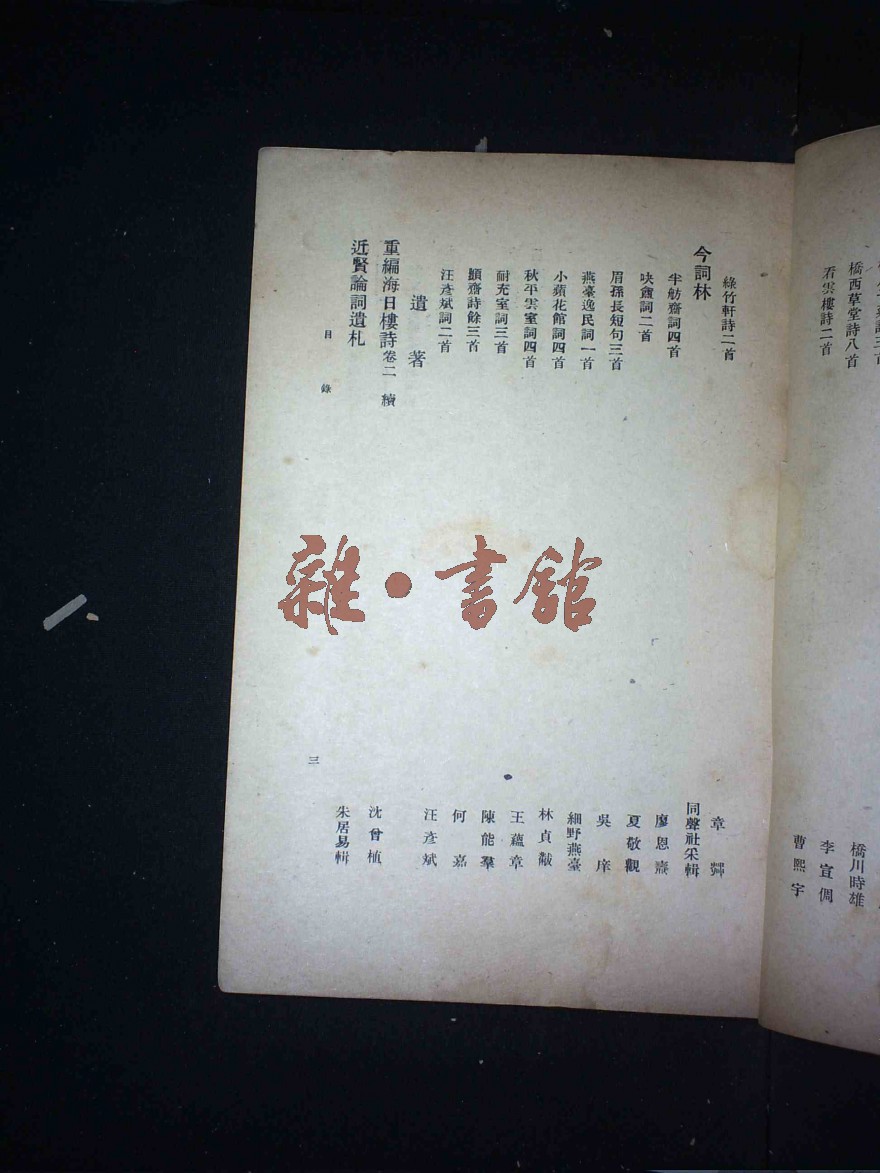 橋西草堂詩八首 橋川時雄
看雲樓詩二首 李宣倜
曹熙宇
綠竹軒詩二首 章
今詞林 同聲社采輯
半舫齋詞四首 廖恩燾
吷盦詞二首 夏敬觀
眉孫長短句三首 吳庠
燕臺逸民詞一首 細野燕臺
小蘋花館詞四首 林貞黻
秋平雲室詞四首 王蘊章
耐充室詞三首 陳能羣
顗齋詩餘三首 何嘉
汪彥斌詞二首 汪彥斌
遺著
重編海日樓詩卷二 續 沈曾植
近賢論詞遺札 朱居易輯
目錄 三
雜·書館